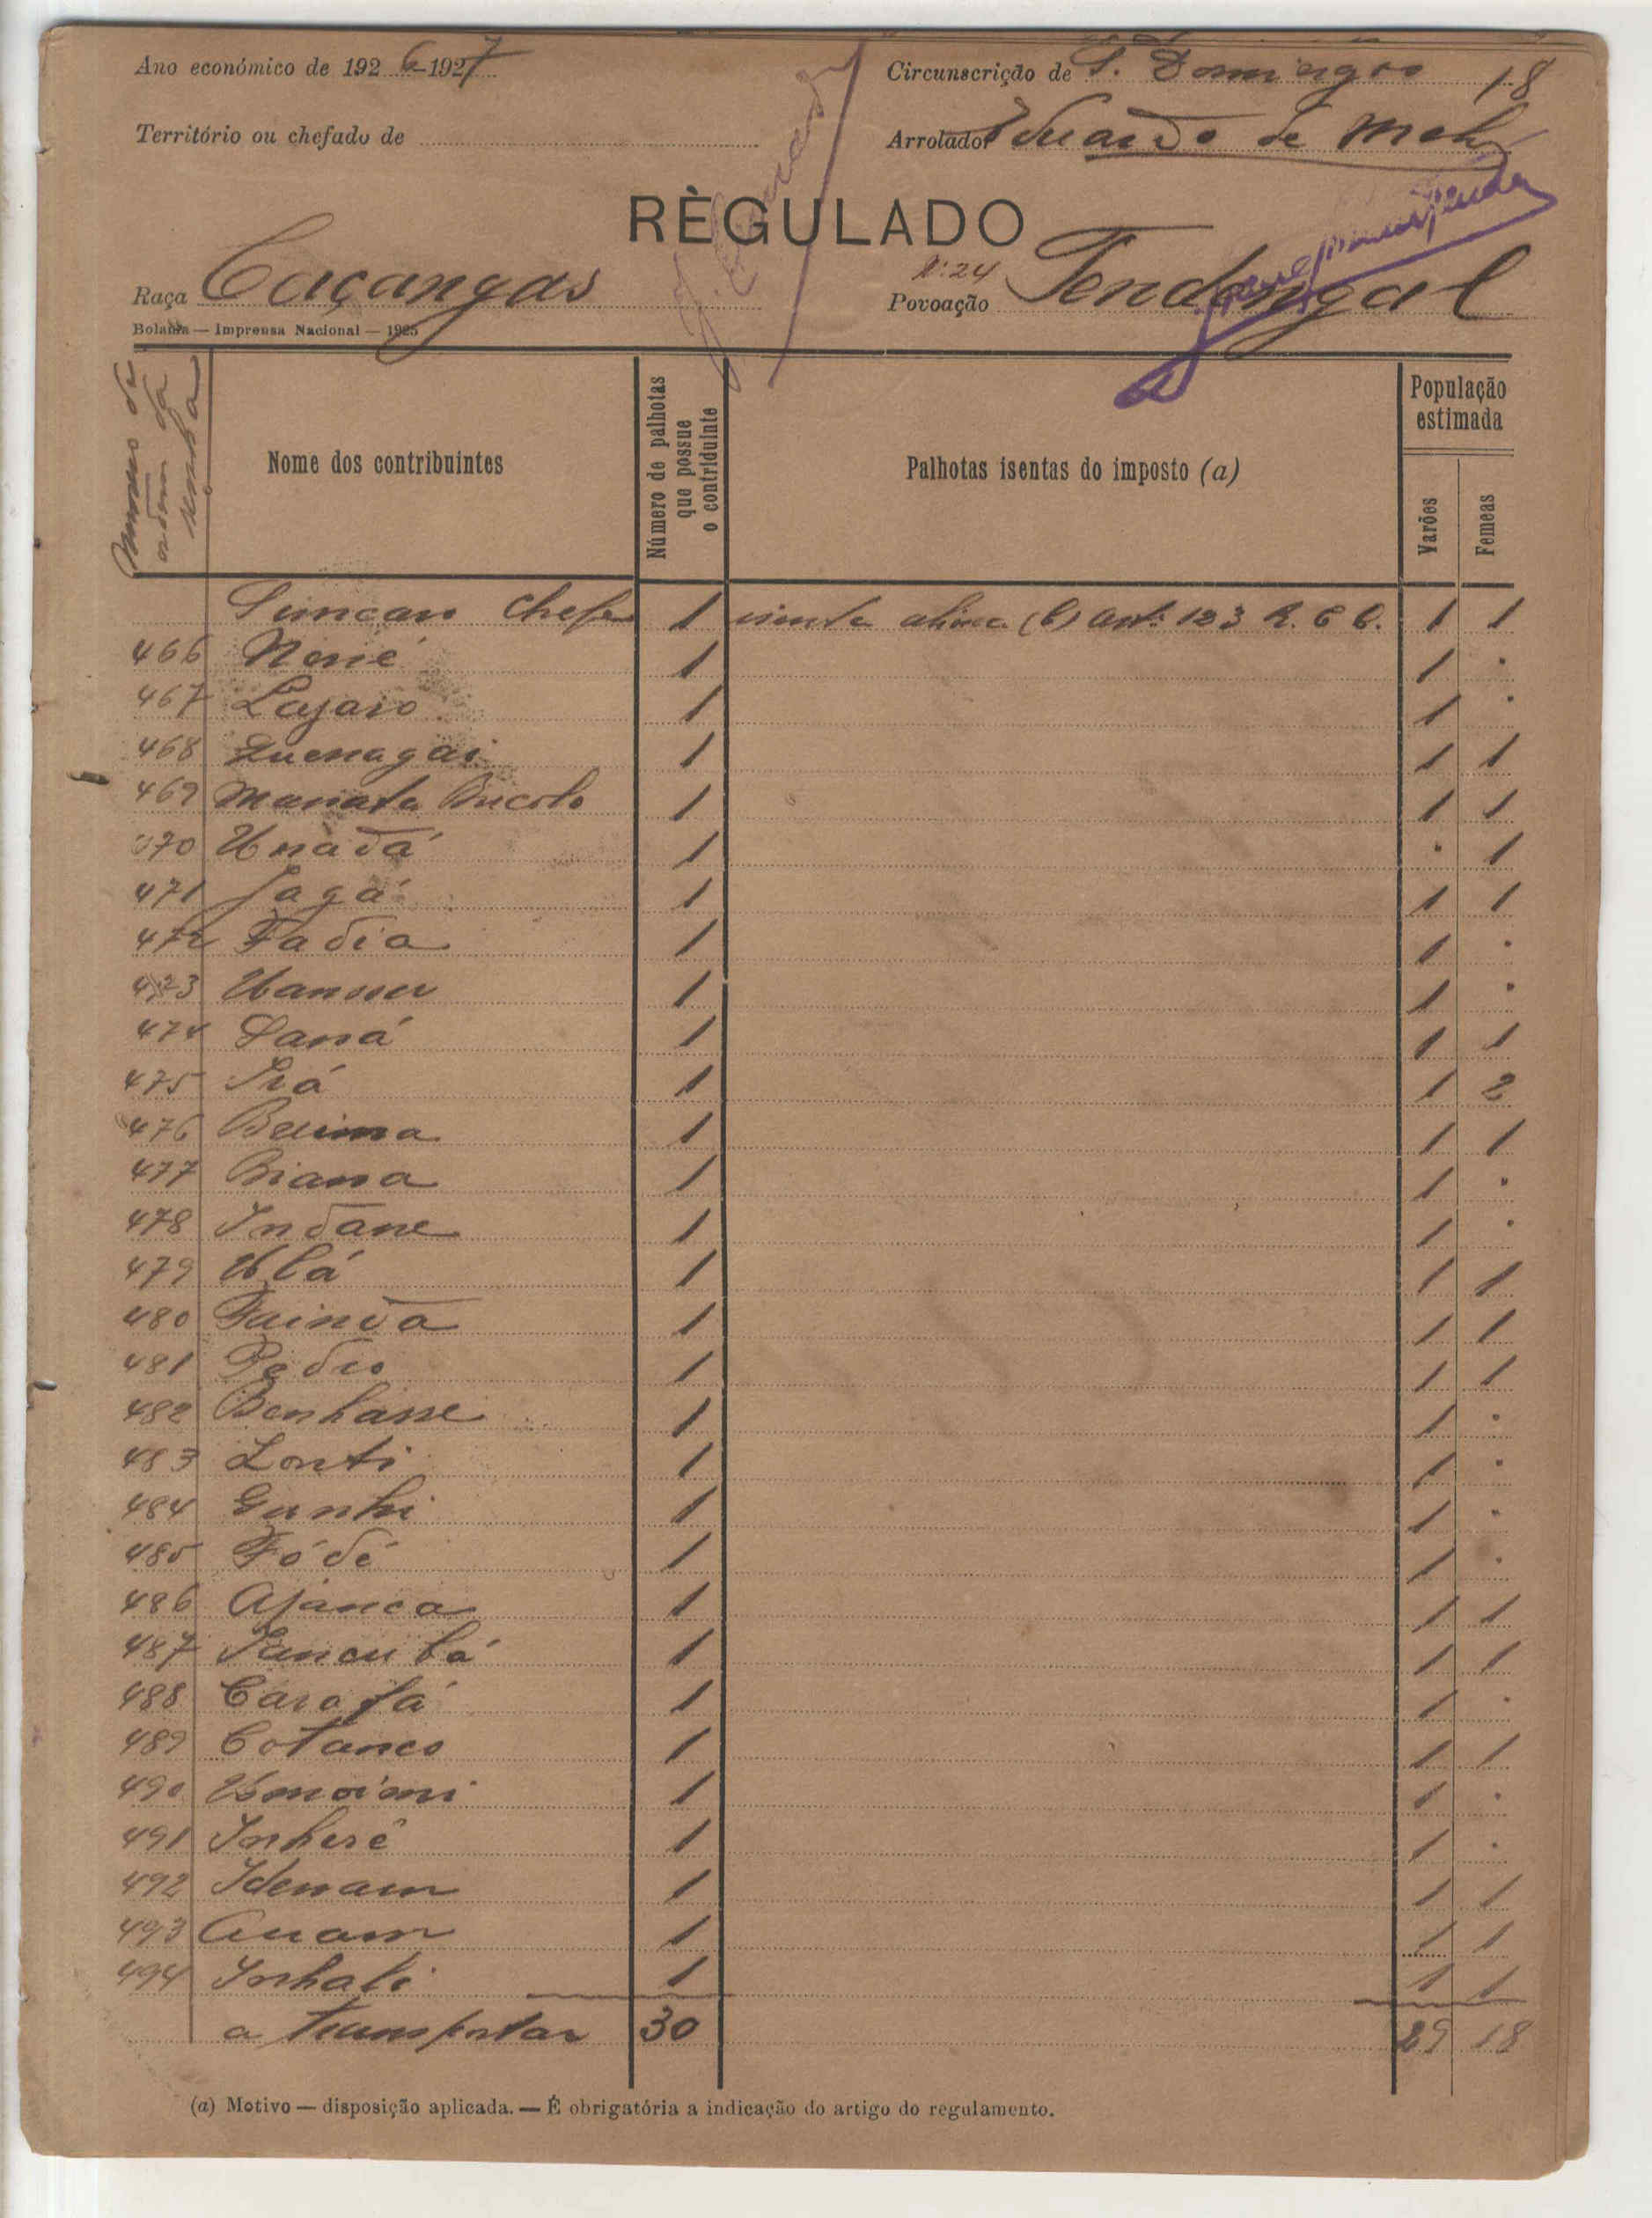 Ano económico de 1926-1927
Circunscrição de S. Domingos 18
Território ou chefado de
Arrolador Eduardo de Melo
RÈGULADO
Raça Caçangas
N.º 24
Povoação Tendengal
Bolama — Imprensa Nacional — 1925
Numero de ordem da senha
Nome dos contribuintes
Número de palhotas que possue o contriduinte
Palhotas isentas do imposto (a)
População estimada
Varões
Femeas
Simcam Chefe 1 isenta alinea (b) art.º 123 R. C. C. 1 1
466 Nené 1 1 "
467 Lajaro 1 1 "
468 Quenagai 1 1 1
469 Manata Bucolo 1 1 1
470 Unadá 1 " 1
471 Jagá 1 1 1
472 Fadia 1 1 "
473 1 1 "
474 Saná 1 1 1
475 Irá 1 1 2
476 1 1 1
477 Biana 1 1 "
478 Indane 1 1 "
479 Ublá 1 1 1
480 Fainda 1 1 1
481 Pedro 1 1 1
482 1 1 "
483 Lonti 1 1 "
484 Gunhi 1 1 "
485 Fódé 1 1 "
486 Ajanca 1 1 1
487 1 1 1
488 Carafá 1 1 "
489 Cotanco 1 1 1
490 1 1 "
491 Inheré 1 1 "
492 Idenam 1 1 1
493 Auam 1 1 1
494 Inhati 1 1 1
a transportar 30 29 18
(a) Motivo — disposição aplicada. — É obrigatória a indicação do artigo do regulamento.